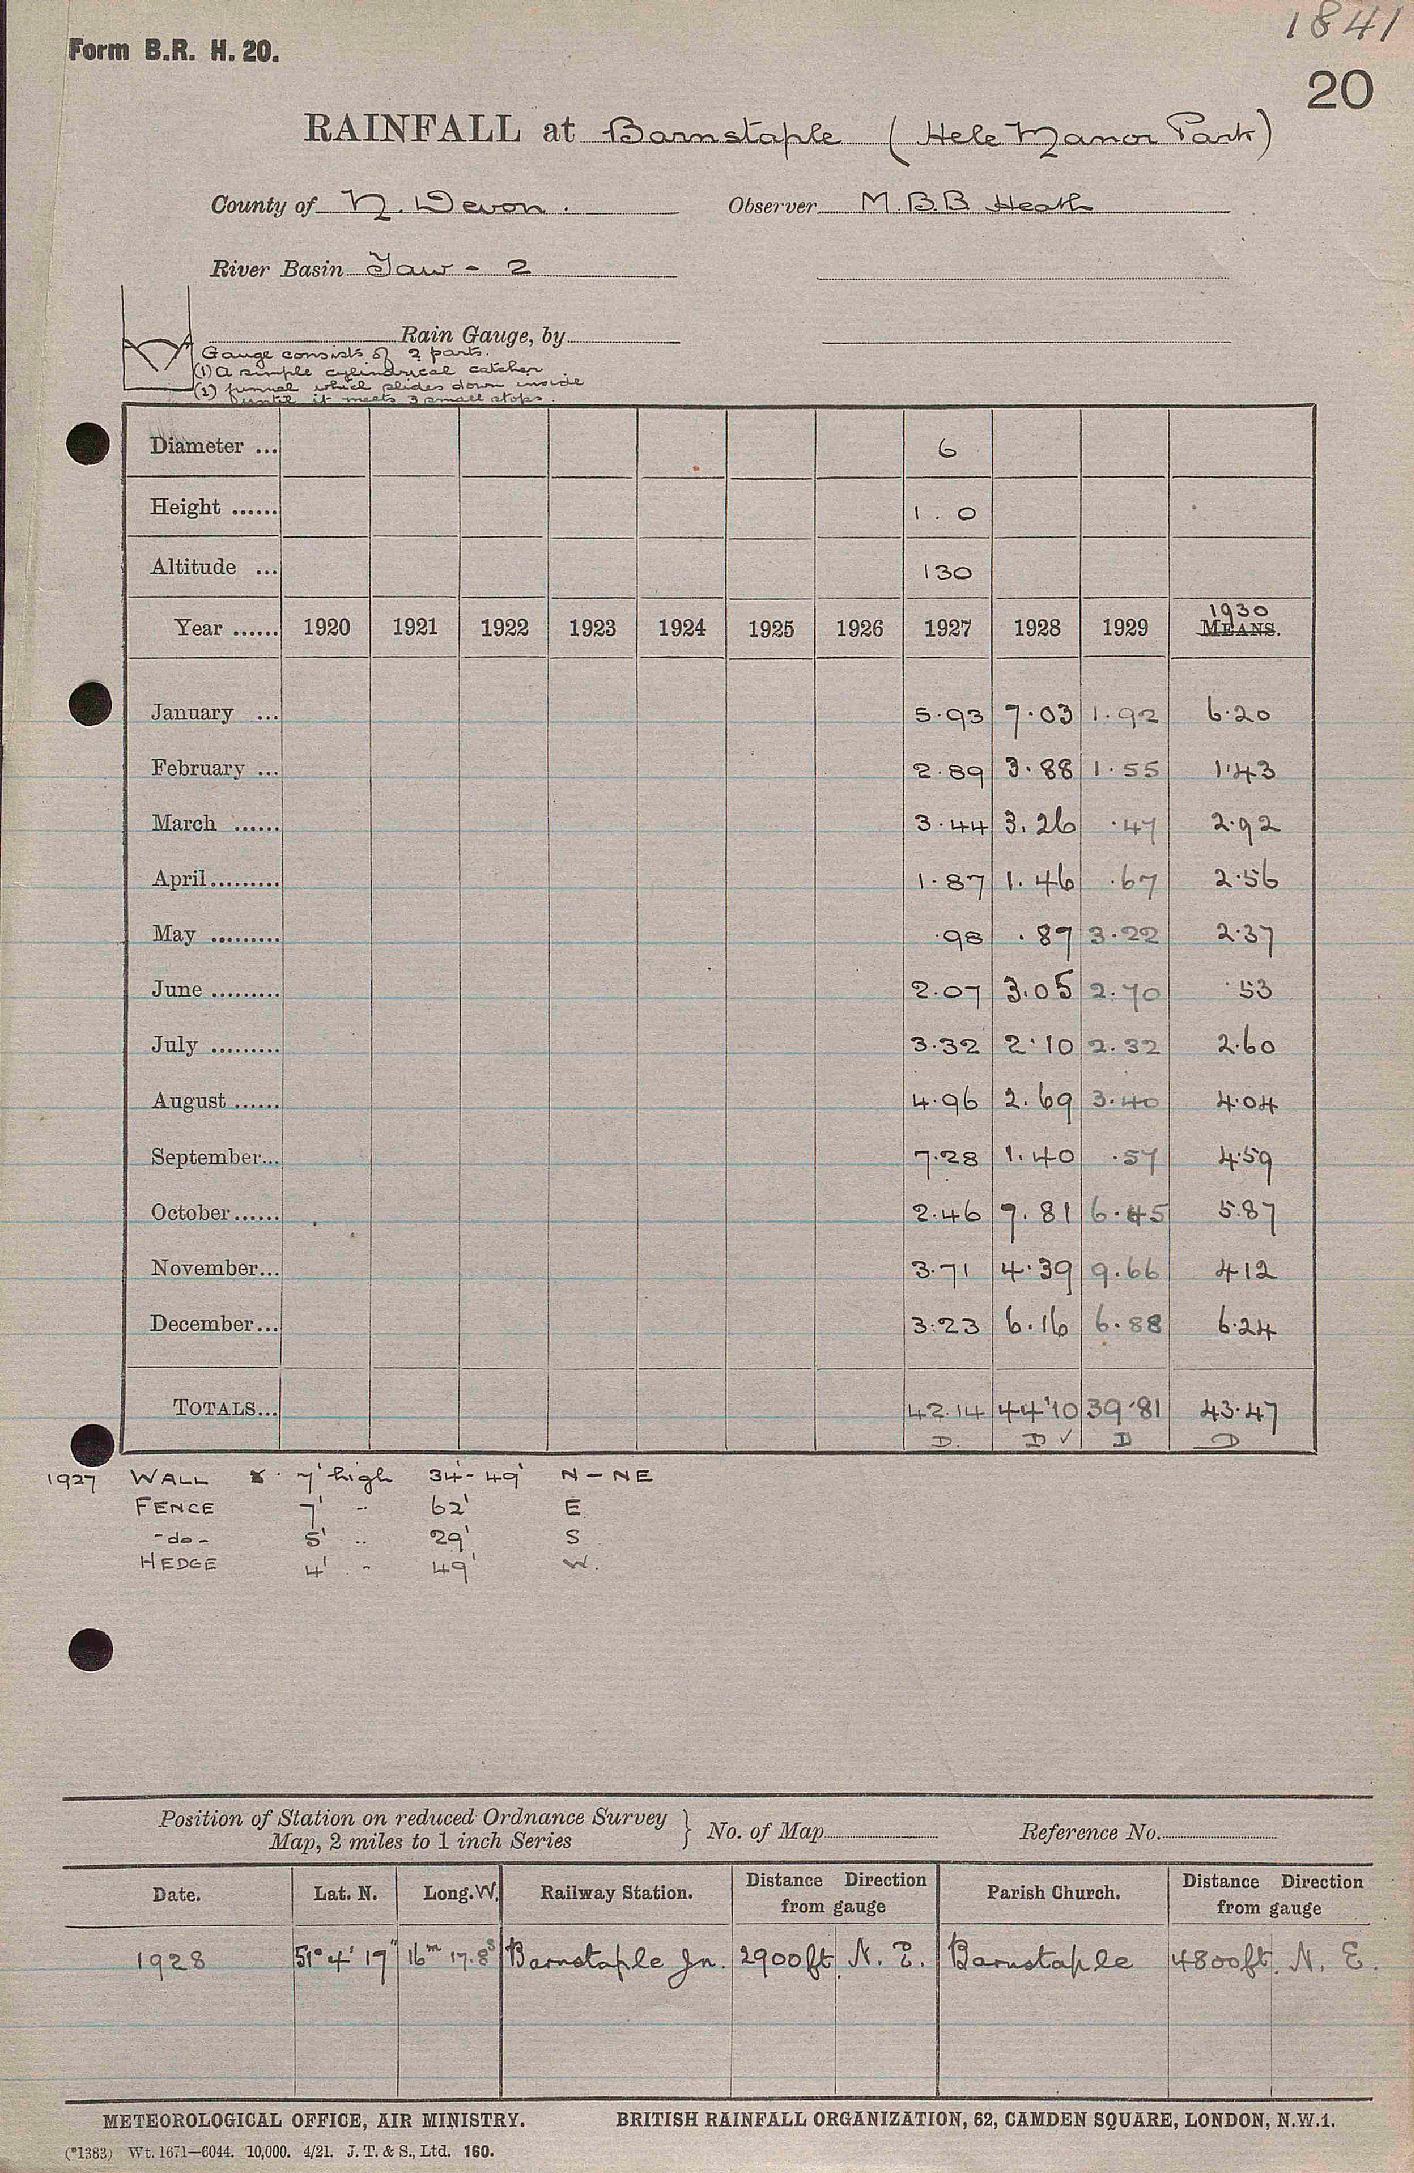 1841
Form B.R. H. 20.
20
RAINFALL at Barnstaple (Hele Manor Park)
County of N. Devon. Observer M.B.B Heath
River Basin Taw - 2
Rain Gauge, by
Gauge consists of 2 parts.
(1) A simple cylindrical catcher.
(2) funnel which slides down inside
until it meets 3 small stops.
Diameter ... 6
Height ...... 1 . 0
Altitude ... 130
Year ...... 1920 1921 1922 1923 1924 1925 1926 1927 1928 1929 1930 MEANS.
January ... 5.93 7.03 1.92 6.20
February ... 2.89 3.88 1.55 1.43
March ...... 3.44 3.26 .47 2.92
April ......... 1.87 1.46 .67 2.56
May ......... .98 .87 3.22 2.37
June ......... 2.07 3.05 2.70 .53
July ......... 3.32 2.10 2.32 2.60
August ...... 4.96 2.69 3.40 4.04
September... 7.28 1.40 .57 4.59
October ...... 2.46 7.81 6.45 5.87
November... 3.71 4.39 9.66 4.12
December... 3.23 6.16 6.88 6.24
TOTALS... 42.14 44.10 39.81 43.47
D. D ✓ D D
1927 WALL 7' high 34'-49' N-NE
FENCE 7' " 62' E
-do- 5' .. 29' S
HEDGE 4' " 49' W.
Position of Station on reduced Ordnance Survey
Map, 2 miles to 1 inch Series } No. of Map Reference No.
Date. Lat. N. Long. W. Railway Station. Distance Direction from gauge Parish Church. Distance Direction from gauge
1928 51° 4' 17" 16m 17.8s Barnstaple Jn. 2900ft N. E. Barnstaple 4800ft. N. E.
METEOROLOGICAL OFFICE, AIR MINISTRY. BRITISH RAINFALL ORGANIZATION, 62, CAMDEN SQUARE, LONDON, N.W.1.
(*1383) Wt. 1671—6044. 10,000. 4/21. J. T. & S., Ltd. 160.